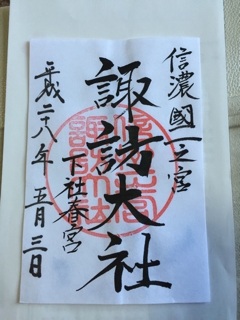 信濃國一之宮
諏訪大社
下社春宮
平成二十八年五月三日